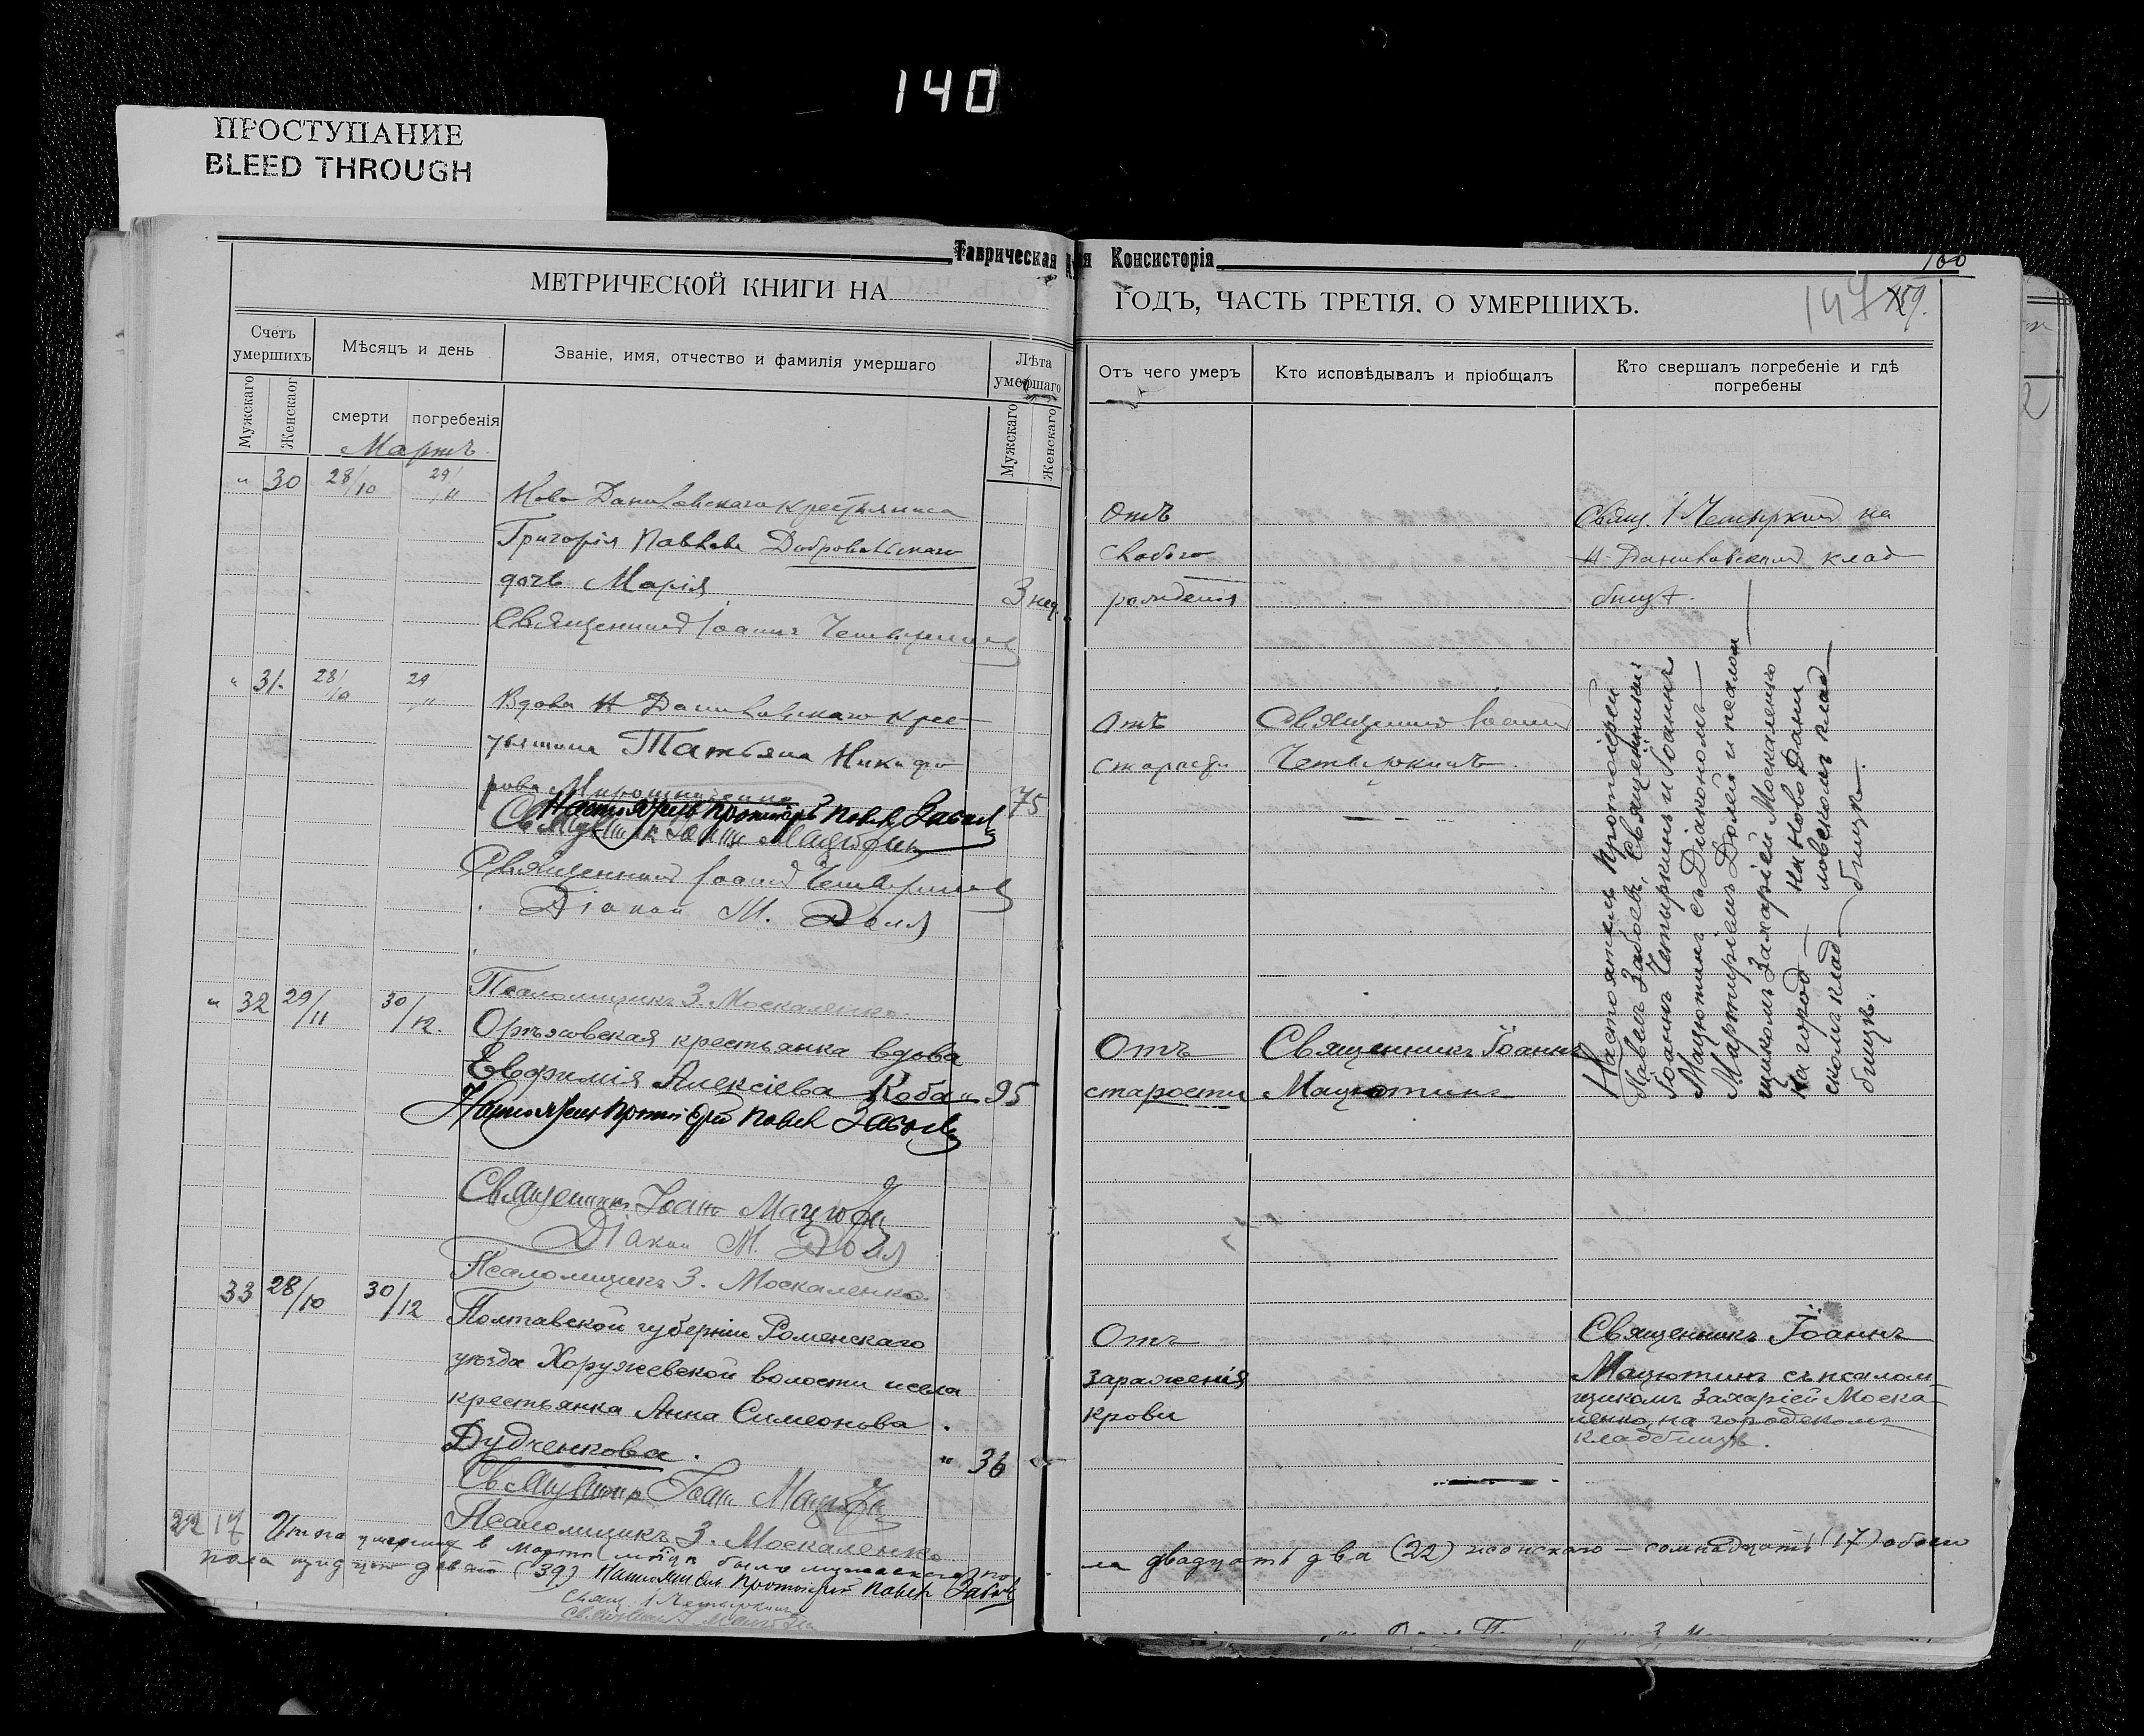 140
ПРОСТУПАНИЕ
BLEED THROUGH
Таврическая Консисторія
МЕТРИЧЕСКОЙ КНИГИ НА
ГОДЪ, ЧАСТЬ ТРЕТІЯ, О УМЕРШИХЪ.
Счетъ умершихъ
Мѣсяцъ и день
Званіе, имя, отчество и фамилія умершаго
Лѣта умершаго
Отъ чего умеръ
Кто исповѣдывалъ и пріобщалъ
Кто свершалъ погребеніе и гдѣ погребены
Мужскаго
Женскаго
смерти
погребенія
Мужскаго
Женскаго
Мартъ
" 30 28/10 29/11
Ново Даниловскаго крестьянина
Григорія Павлова Добровольскаго
дочь Марія 3 нед.
Священникъ Іоаннъ Четыркинъ
Отъ
слабого
рожденія
Свящ. І Четыркинъ на
Н-Даниловскомъ клад
бищѣ.
" 31. 28/10 29/11
Вдова Н Даниловскаго крес
тьянина Татьяна Никифо
рова 75
Настоятель Протоіерей Павелъ Забоевъ
Священникъ Іоаннъ Мацютинъ
Священникъ Іоаннъ Четыркинъ
Діаконъ М. Доля
Псаломщикъ З. Москаленко.
Отъ
старости
Священникъ Іоаннъ
Четыркинъ.
" 32 29/11 30/12.
Орѣховская крестьянка вдова
Евфимія Алексіева Кобан 95
Настоятель Протоіерей Павелъ Забоевъ
Священникъ Іоаннъ Мацютинъ
Діаконъ М. Доля
Псаломщикъ З. Москаленко.
Отъ
старости
Священникъ Іоаннъ
Мацютинъ
Настоятель Протоіерей
Павелъ Забоевъ, Священники:
Іоаннъ Четыркинъ и Іоаннъ
Мацютинъ съ Діакономъ
Мартиріемъ Долей и псалом
щикомъ Захаріей Москаленко
на город
скомъ клад
бищѣ.
на Ново Дани
ловскомъ клад
бищѣ.
33 28/10 30/12
Полтавской губерніи Роменскаго
уѣзда Хоружевской волости и села
крестьянка Анна Симеонова
Дудченкова. " 36
Священникъ Іоаннъ Мацютинъ
Псаломщикъ З. Москаленко
Отъ
зараженія
крови
Священникъ Іоаннъ
Мацютинъ съ псалом
щикомъ Захаріей Моска-
ленко, на городскомъ
кладбищѣ.
22 17 Итого умершихъ в Мартѣ мѣсяцѣ было мужескаго по
ла двадцать два (22) женскаго — семнадцать (17) обоего
пола тридцать девять (39) Настоятель Протоіерей Павелъ Забоевъ
Свящ. І Четыркинъ